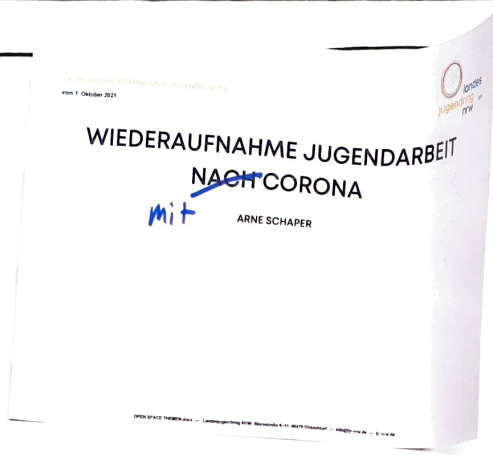 vom 1. Oktober 2021
landes
jugendring
nrw
WIEDERAUFNAHME JUGENDARBEIT
NACH CORONA
mit
ARNE SCHAPER
OPEN SPACE THEMEN.docx — Landesjugendring NRW Sternstraße 9–11 40479 Düsseldorf — info@ljr-nrw.de — ljr-nrw.de